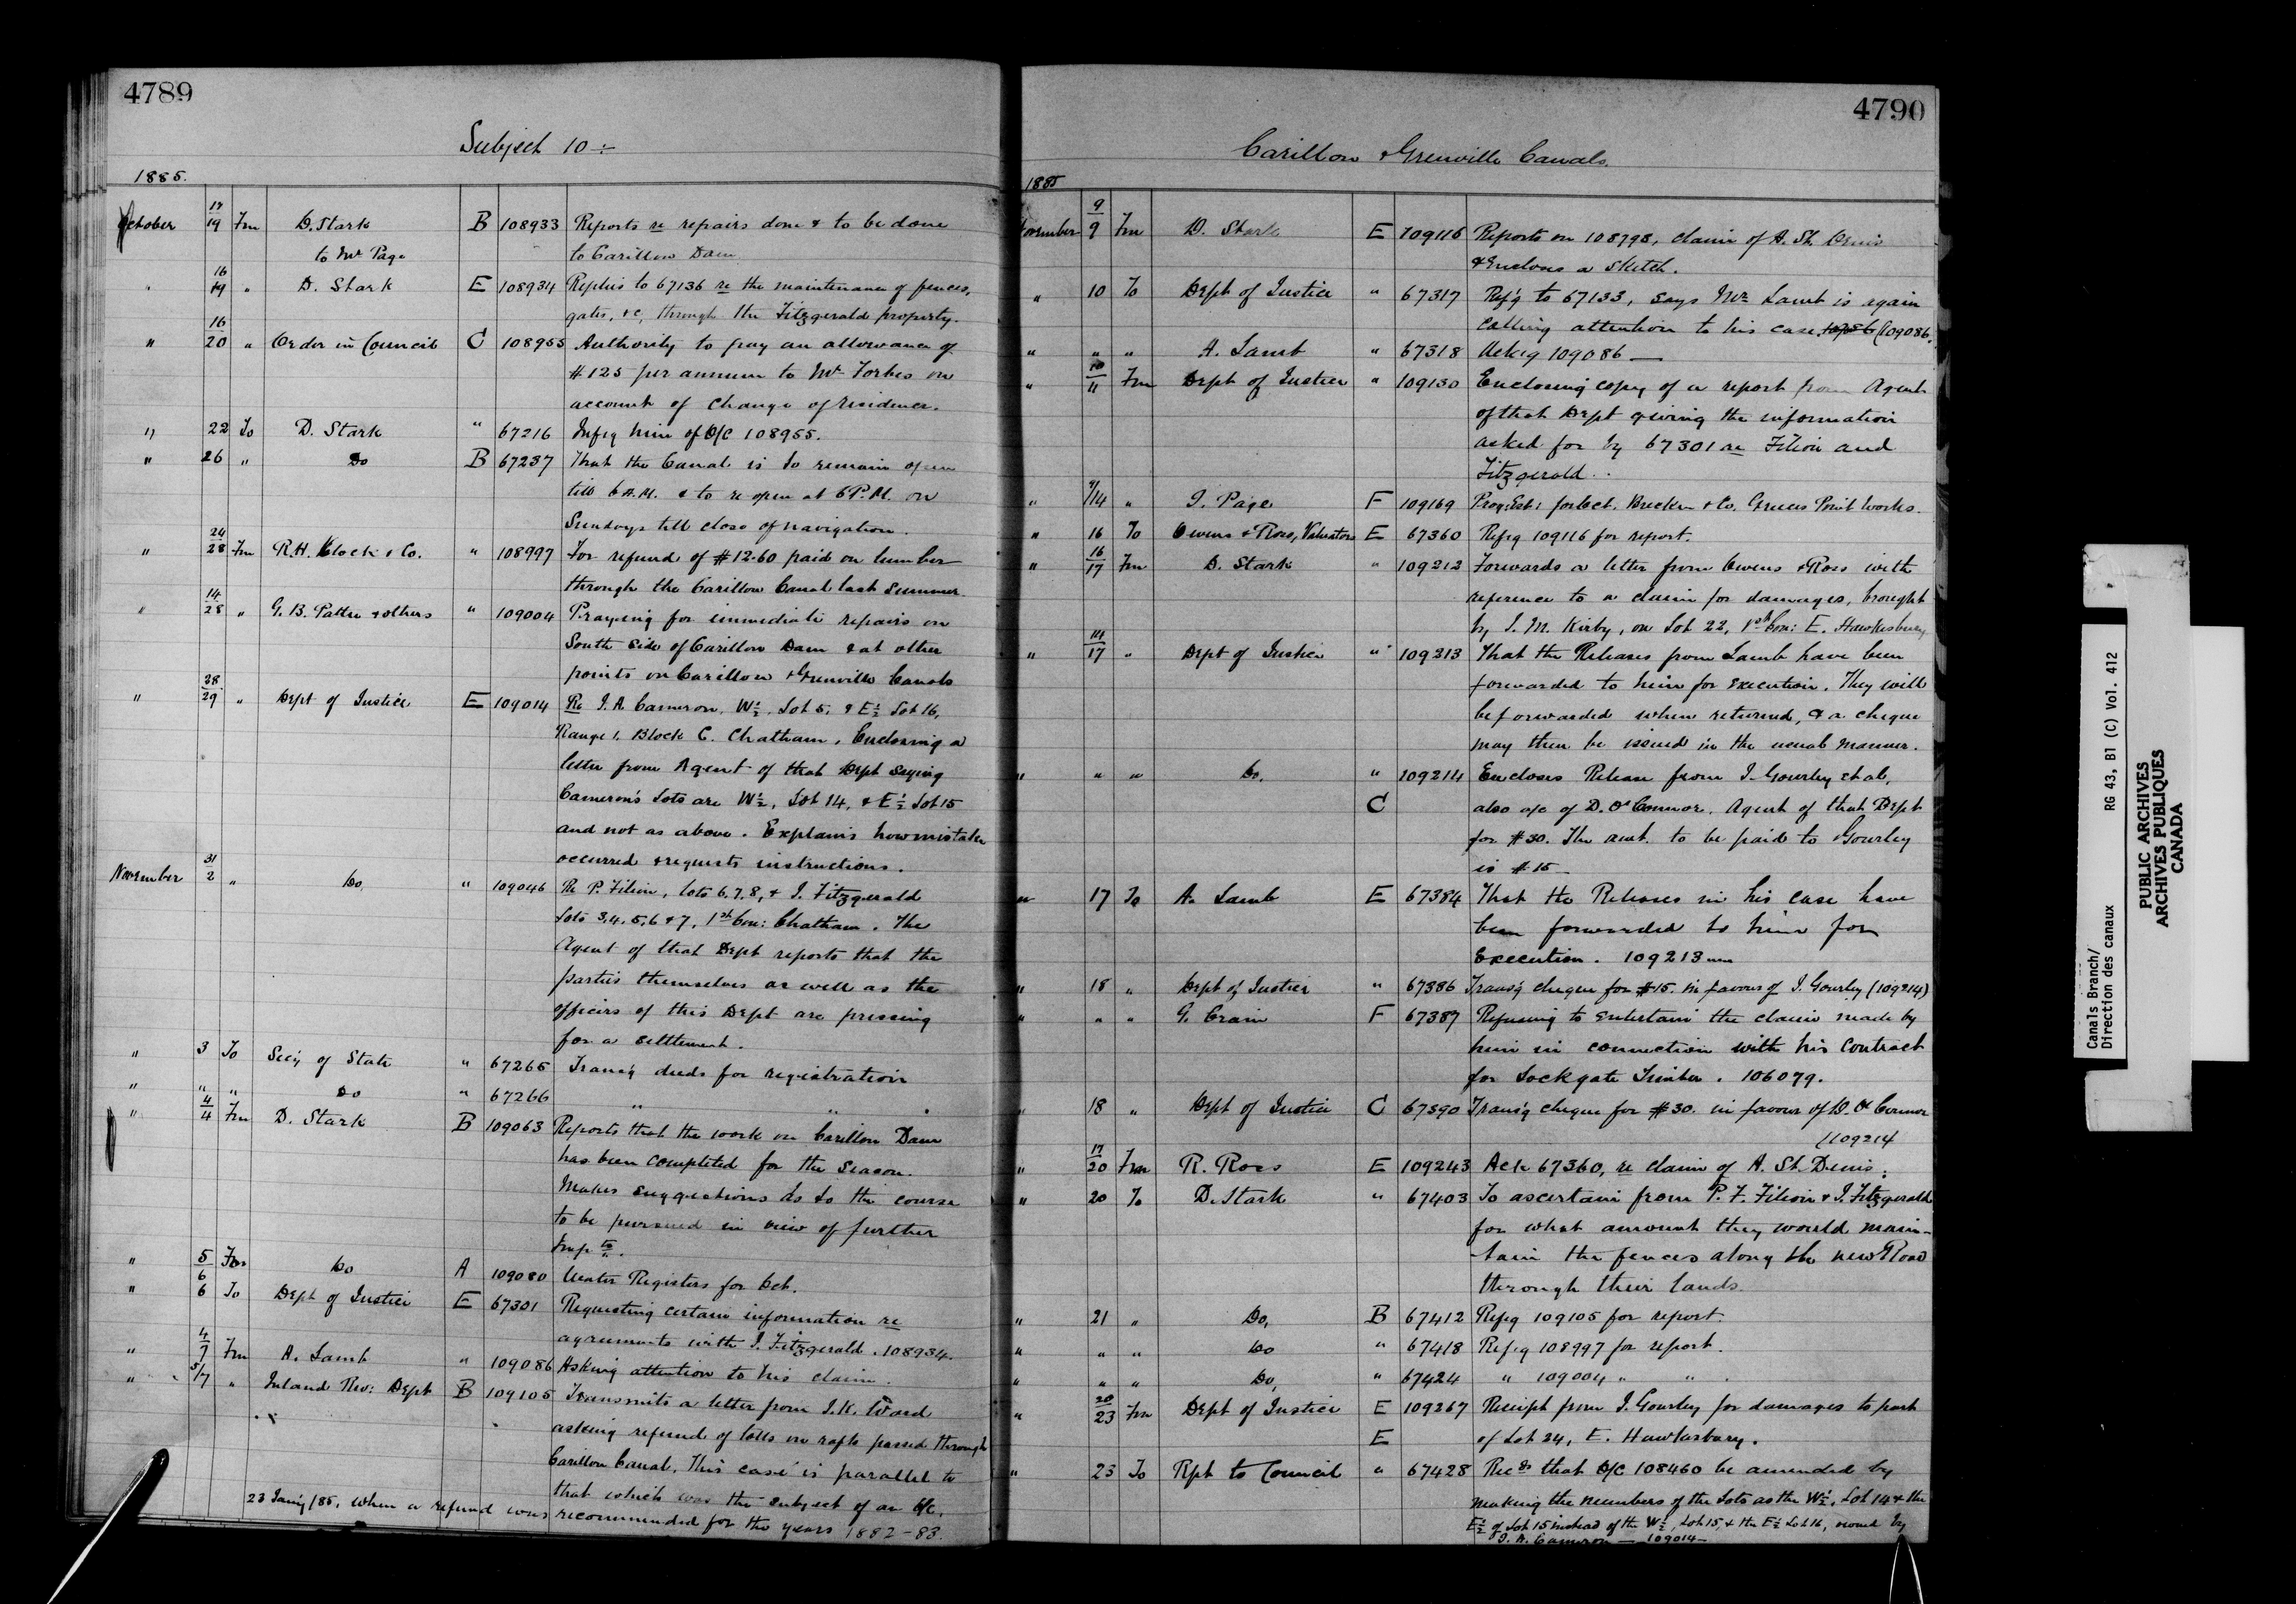 4789
Subject 10 :-
1885.
October 17/19 Fm D. Stark B 108933 Reports re repairs done & to be done
to Mr Page to Carillon Dam
" 16/19 " D. Stark E 108934 Replies to 67136 re the maintenance of fences,
gates, &c, through the Fitzgerald property.
" 16/20 " Order in Council C 108955 Authority to pay an allowance of
$125 per annum to Mr Forbes on
account of change of residence.
" 22 To D. Stark " 67216 Infg him of O/C 108955.
" 26 " Do B 67237 That the Canal is to remain open
till 6 A.M. & to re open at 6 P.M. on
Sundays till close of navigation.
" 24/28 Fm R.H. Klock & Co. " 108997 For refund of $12.60 paid on lumber
through the Carillon Canal last Summer
" 14/28 " G. B. Pattee & others " 109004 Praying for immediate repairs on
South Side of Carillon Dam & at other
points on Carillon & Grenville Canals
" 28/29 " Dept of Justice E 109014 Re J. A. Cameron. W½. Lot 5, & E½ Lot 16,
Range 1. Block C. Chatham, Enclosing a
letter from Agent of that Dept saying
Cameron's Lots are W½, Lot 14, & E½ Lot 15
and not as above. Explains how mistake
occurred & requests instructions.
November 31/2 " Do, " 109046 Re P. Filion, lots 6.7.8, & J. Fitzgerald
Lots 3,4.5,6 & 7, 1st Con: Chatham. The
Agent of that Dept reports that the
parties themselves as well as the
officers of this Dept are pressing
for a settlement.
" 3 To Sec'y of State " 67265 Transg deeds for registration
" " " Do " 67266 " " "
" 4/4 Fm D. Stark B 109063 Reports that the work on Carillon Dam
has been completed for the season.
Makes suggestions as to the course
to be pursued in view of further
Imp ts.
" 5/6 Fm Do A 109080 Water Registers for Oct.
" 6 To Dept of Justice E 67301 Requesting certain information re
agreements with J. Fitzgerald. 108934.
" 4/7 Fm A. Lamb " 109086 Asking attention to his claim.
" 5/7 " Inland Rev: Dept B 109105 Transmits a letter from J.K. Ward
asking refund of tolls on rafts passed through
Carillon Canal. This case is parallel to
that which was the subject of an O/C,
23 Jan'y/85, when a refund was recommended for the years 1882-83.
4790
Carillon & Grenville Canals.
1885
November 9/9 Fm D. Stark E 109116 Reports on 108798, claim of A. St. Denis
& Encloses a Sketch.
" 10 To Dept of Justice " 67317 Ref'g to 67133, says Mr Lamb is again
calling attention to his case (109086.
" " " A. Lamb " 67318 Ackg 109086 —
" 10/11 Fm Dept of Justice " 109130 Enclosing copy of a report from Agent
of that Dept giving the information
asked for by 67301 re Filion and
Fitzgerald.
" 9/14 " J. Page F 109169 Prog: Est: for Oct. Brecken & Co, Greeces Point Works.
" 16 To Owens & Ross, Valuators E 67360 Refrg 109116 for report.
" 16/17 Fm D. Stark " 109212 Forwards a letter from Owens & Ross with
reference to a claim for damages, brought
by J. M. Kirby, on Lot 22, 1st Con: E. Hawkesbury
" 14/17 " Dept of Justice " 109213 That the Releases from Lamb have been
forwarded to him for execution. They will
be forwarded when returned, & a cheque
may then be issued in the usual manner.
" " " Do. " 109214 Encloses Release from J. Gourley et al,
C also a/c of D. O'Connor. Agent of that Dept
for $30. The amt. to be paid to Gourley
is $15 —
" 17 To A. Lamb E 67384 That the Releases in his case have
been forwarded to him for
Execution. 109213
" 18 " Dept of Justice " 67386 Trans'g cheque for $15. in favour of J. Gourley (109214)
" " " G. Crain F 67387 Refusing to entertain the claim made by
him in connection with his Contract
for Lockgate Timber. 106079.
" 18 " Dept of Justice C 67390 Trans'g cheque for $30. in favour of D. O'Connor
(109214
" 17/20 Fm R. Ross E 109243 Ack 67360, re claim of A. St. Denis.
" 20 To D. Stark " 67403 To ascertain from P. F. Filion & J. Fitzgerald
for what amount they would main-
-tain the fences along the new Road
through their lands.
" 21 " Do, B 67412 Refrg 109105 for report.
" " " Do " 67418 Refrg 108997 for report.
" " " Do, " 67424 " 109004 " " .
" 20/23 Fm Dept of Justice E 109267 Receipt from J. Gourley for damages to part
E of Lot 24, E. Hawkesbury.
" 23 To Rpt to Council " 67428 Recds that O/C 108460 be amended by
making the numbers of the Lots as the W½, Lot 14 & the
E½ of Lot 15 instead of the W½, Lot 15, & the E½ Lot 16, owned by
J. A. Cameron — 109014 —
Canals Branch/
Direction des canaux RG 43, B1 (C) Vol. 412
PUBLIC ARCHIVES
ARCHIVES PUBLIQUES
CANADA